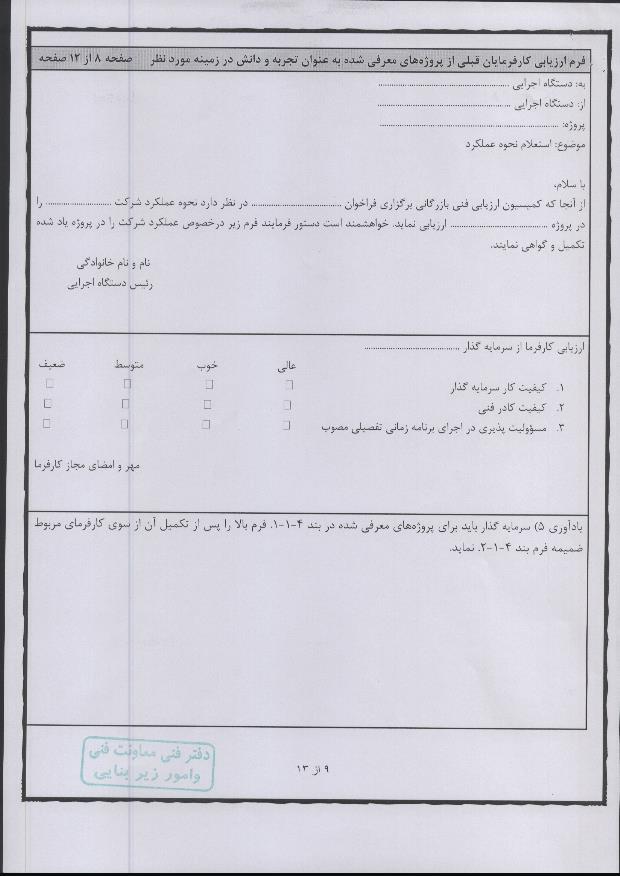 فرم ارزیابی کارفرمایان قبلی از پروژه‌های معرفی شده به عنوان تجربه و دانش در زمینه مورد نظر صفحه ۸ از ۱۲ صفحه
به: دستگاه اجرایی ......................................
از: دستگاه اجرایی ......................................
پروژه: ......................................
موضوع: استعلام نحوه عملکرد
با سلام،
از آنجا که کمیسیون ارزیابی فنی بازرگانی برگزاری فراخوان .............................. در نظر دارد نحوه عملکرد شرکت ...................... را
در پروژه .............................. ارزیابی نماید. خواهشمند است دستور فرمایند فرم زیر درخصوص عملکرد شرکت را در پروژه یاد شده
تکمیل و گواهی نمایند.
نام و نام خانوادگی
رئیس دستگاه اجرایی
ارزیابی کارفرما از سرمایه گذار ..............................
عالی خوب متوسط ضعیف
۱. کیفیت کار سرمایه گذار □ □ □ □
۲. کیفیت کادر فنی □ □ □ □
۳. مسؤولیت پذیری در اجرای برنامه زمانی تفصیلی مصوب □ □ □ □
مهر و امضای مجاز کارفرما
یادآوری ۵) سرمایه گذار باید برای پروژه‌های معرفی شده در بند ۴-۱-۱. فرم بالا را پس از تکمیل آن از سوی کارفرمای مربوط
ضمیمه فرم بند ۴-۱-۲. نماید.
۹ از ۱۳
دفتر فنی معاونت فنی
وامور زیر بنایی